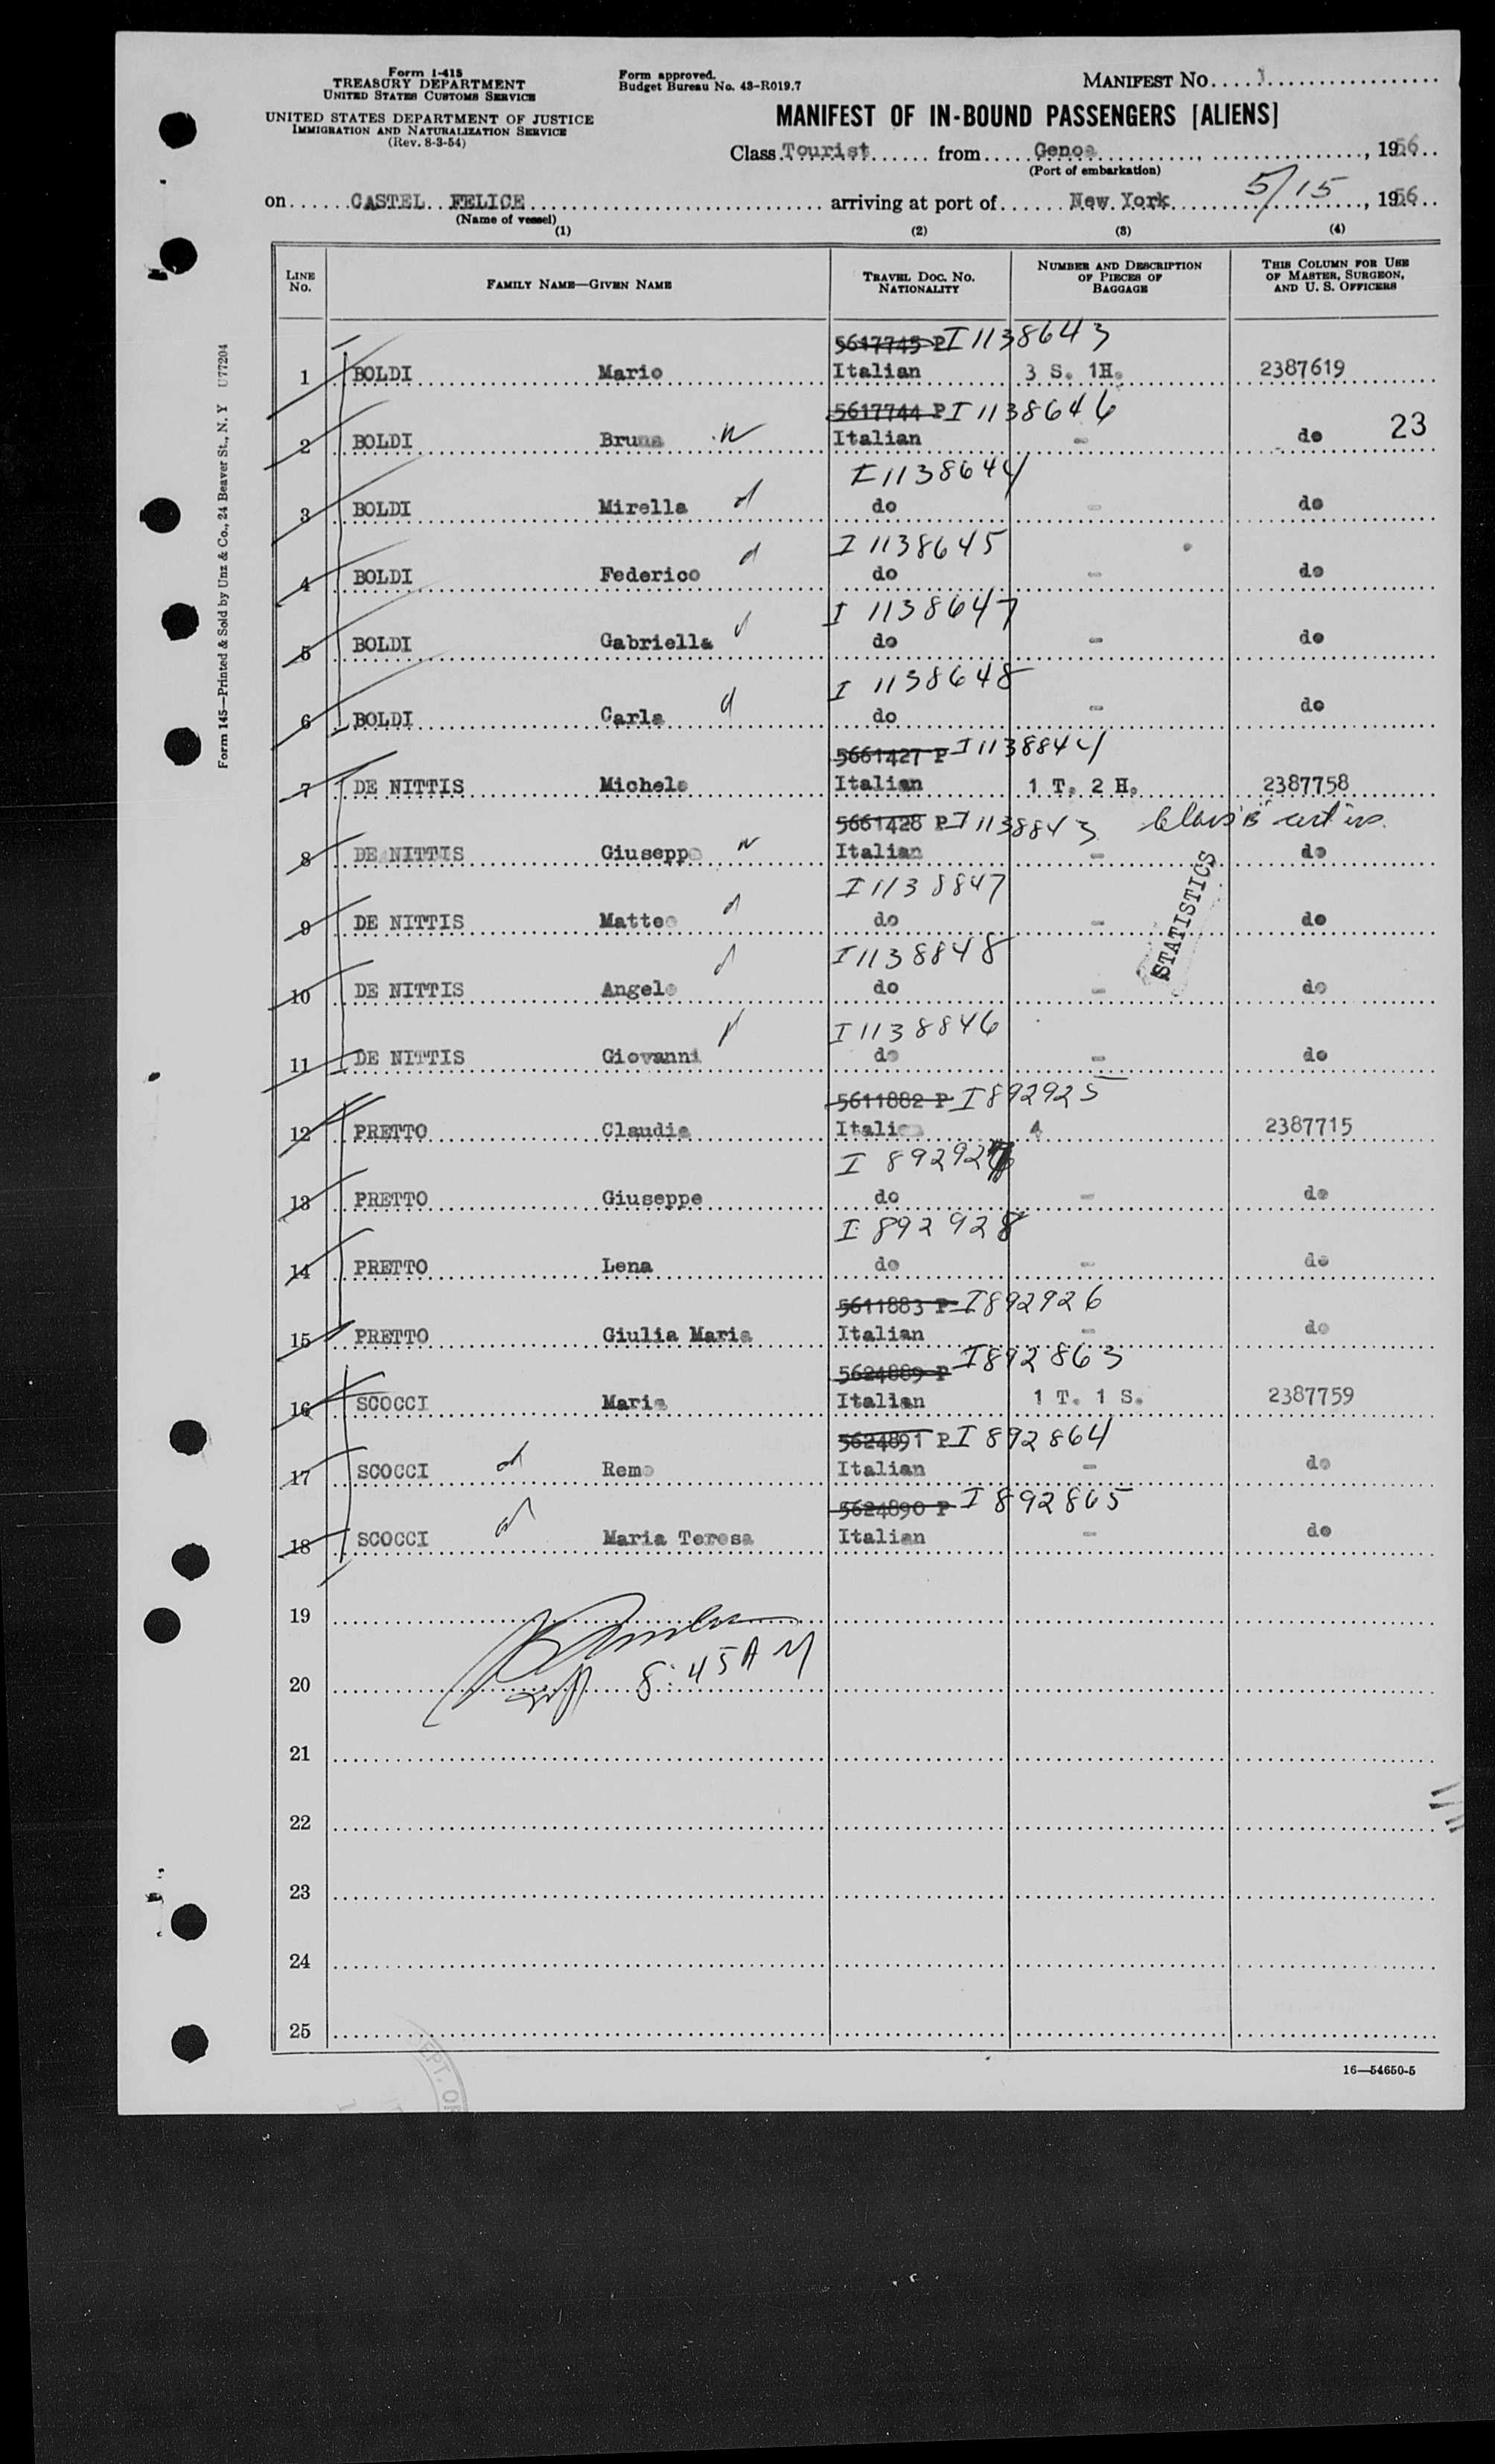 Form I-415
TREASURY DEPARTMENT
UNITED STATES CUSTOMS SERVICE
UNITED STATES DEPARTMENT OF JUSTICE
IMMIGRATION AND NATURALIZATION SERVICE
(Rev. 8-3-54)
Form approved.
Budget Bureau No. 43-R019.7
MANIFEST NO. 1
MANIFEST OF IN-BOUND PASSENGERS [ALIENS]
Class Tourist from Genoa, 1956
(Port of embarkation)
on CASTEL FELICE arriving at port of New York 5/15, 1956
(Name of vessel)
(1) (2) (3) (4)
LINE NO. FAMILY NAME—GIVEN NAME TRAVEL DOC. NO. NATIONALITY NUMBER AND DESCRIPTION OF PIECES OF BAGGAGE THIS COLUMN FOR USE OF MASTER, SURGEON, AND U. S. OFFICERS
5617745 P I 1138643
1 BOLDI Mario Italian 3 S. 1H. 2387619
5617744 P I 1138646
2 BOLDI Bruna W Italian - do 23
I 1138644
3 BOLDI Mirella d do - do
I 1138645
4 BOLDI Federico d do - do
I 1138647
5 BOLDI Gabriella d do - do
I 1138648
6 BOLDI Carla d do - do
5661427 P I 1138844
7 DE NITTIS Michele Italian 1 T. 2 H. 2387758
5661428 P I 1138843 Class "B"
8 DE NITTIS Giuseppa W Italian - do
I 1138847
9 DE NITTIS Matteo d do - do
STATISTICS
I 1138848
10 DE NITTIS Angelo d do - do
I 1138846
11 DE NITTIS Giovanni d do - do
5611882 P I 892925
12 PRETTO Claudia Italian 4 2387715
I 892927
13 PRETTO Giuseppe do - do
I 892928
14 PRETTO Lena do - do
5611883 P I 892926
15 PRETTO Giulia Maria Italian - do
5624889 P I 892863
16 SCOCCI Maria Italian 1 T. 1 S. 2387759
5624891 P I 892864
17 SCOCCI d Remo Italian - do
5624890 P I 892865
18 SCOCCI d Maria Teresa Italian - do
19
20 8:45 AM
21
22
23
24
25
16—54650-5
Form 145—Printed & Sold by Unz & Co., 24 Beaver St., N. Y U77204
EPT. OF